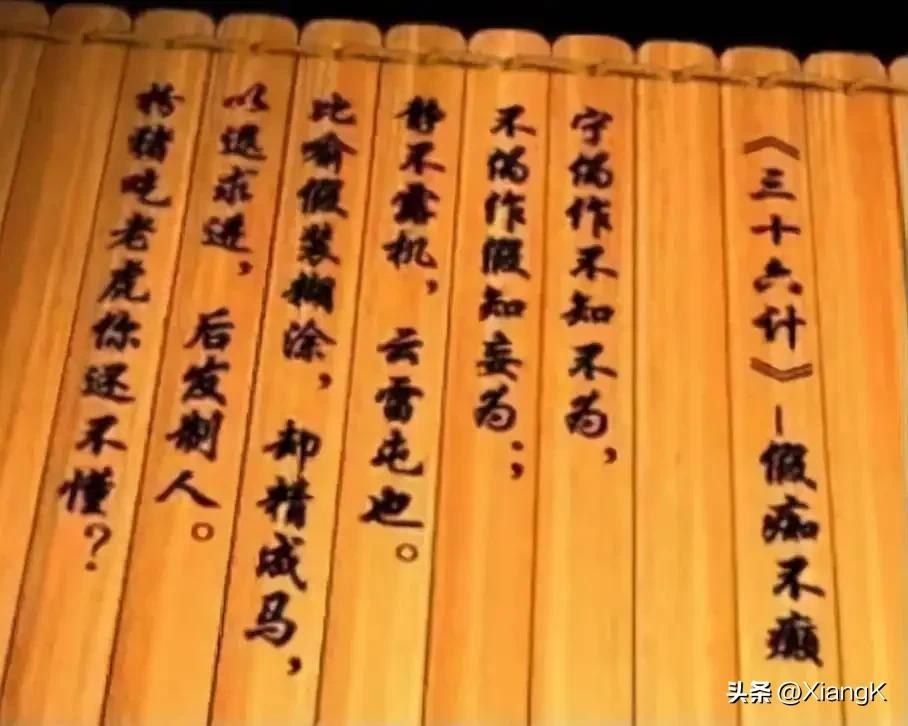 《三十六计》-假痴不癫
宁伪作不知不为，
不伪作假知妄为；
静不露机，云雷屯也。
比喻假装糊涂，却精成马，
以退求进，后发制人。
扮猪吃老虎你还不懂？
头条 @XiangK